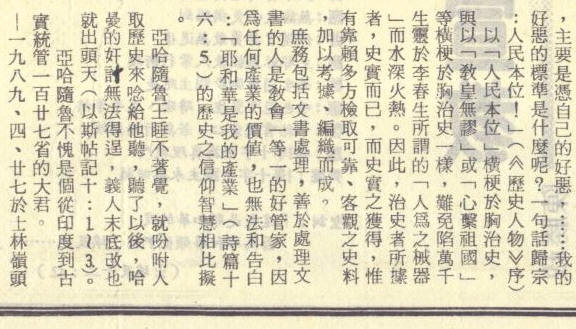 ，主要是憑自己的好惡……我的
好惡的標準是什麼呢？一句話歸宗
：人民本位！」（《歷史人物》序）
以「人民本位」橫梗於胸治史，
與以「教皇無謬」或「心繫祖國」
等橫梗於胸治史一樣，難免陷萬千
生靈於李春生所謂的「人為之械器
」而水深火熱。因此，治史者所據
者，史實而已，而史實之獲得，惟
有靠賴多方檢取可靠、客觀之史料
，加以考據、編織而成。
庶務包括文書處理，善於處理文
書的人是教會一等一的好管家，因
為任何產業的價值，也無法和告白
：「耶和華是我的產業」（詩篇十
六：5.）的歷史之信仰智慧相比擬
。
亞哈隨魯王睡不著覺，就吩咐人
取歷史來唸給他聽，聽了以後，哈
曼的奸計無法得逞，義人末底改也
就出頭天（以斯帖記十：1～3.）。
亞哈隨魯不愧是個從印度到古
實統管一百廿七省的大君。
—一九八九、四、廿七於士林嶺頭